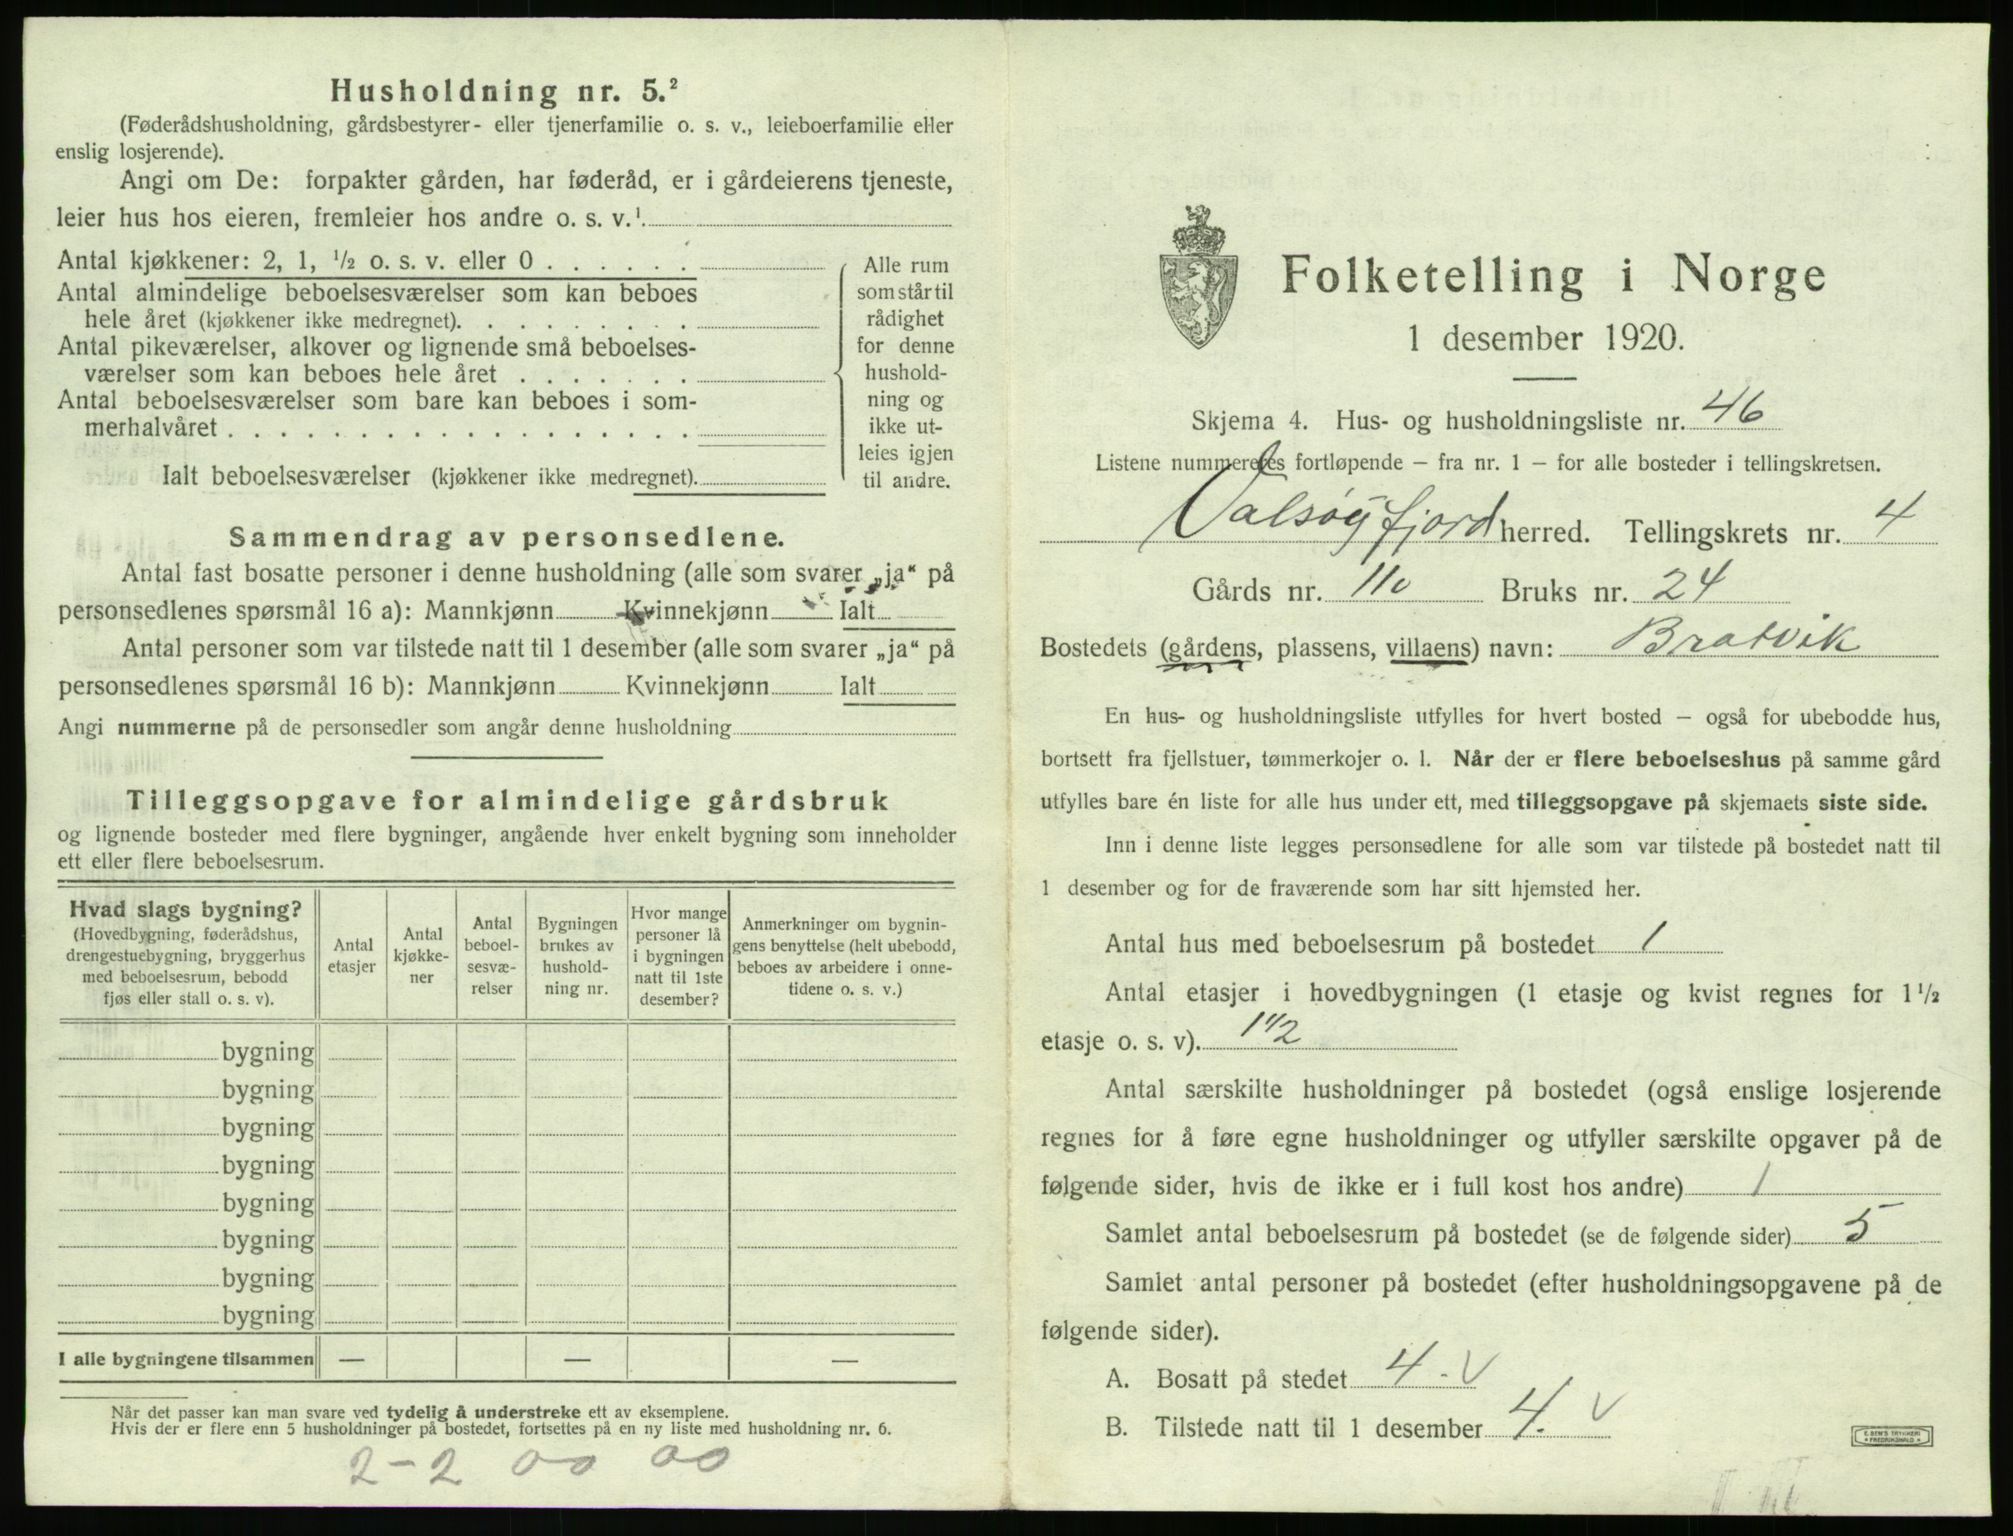 Husholdning nr. 5.²
(Føderådshusholdning, gårdsbestyrer- eller tjenerfamilie o. s. v., leieboerfamilie eller
enslig losjerende).
Angi om De: forpakter gården, har føderåd, er i gårdeierens tjeneste,
leier hus hos eieren, fremleier hos andre o. s. v.¹
Antal kjøkkener: 2, 1, ½ o. s. v. eller 0 . . . . . .
Antal almindelige beboelsesværelser som kan beboes
hele året (kjøkkener ikke medregnet). . . . . . . . .
Antal pikeværelser, alkover og lignende små beboelses-
værelser som kan beboes hele året . . . . . . .
Antal beboelsesværelser som bare kan beboes i som-
merhalvåret . . . . . . . . . . . . . . . . . .
Ialt beboelsesværelser (kjøkkener ikke medregnet).
Alle rum
som står til
rådighet
for denne
hushold-
ning og
ikke ut-
leies igjen
til andre.
Sammendrag av personsedlene.
Antal fast bosatte personer i denne husholdning (alle som svarer „ja“ på
personsedlenes spørsmål 16 a): Mannkjønn Kvinnekjønn Ialt
Antal personer som var tilstede natt til 1 desember (alle som svarer „ja“ på
personsedlenes spørsmål 16 b): Mannkjønn Kvinnekjønn Ialt
Angi nummerne på de personsedler som angår denne husholdning
Tilleggsopgave for almindelige gårdsbruk
og lignende bosteder med flere bygninger, angående hver enkelt bygning som inneholder
ett eller flere beboelsesrum.
Hvad slags bygning?
(Hovedbygning, føderådshus,
drengestuebygning, bryggerhus
med beboelsesrum, bebodd
fjøs eller stall o. s. v).
Antal
etasjer
Antal
kjøkke-
ner
Antal
beboel-
sesvæ-
relser
Bygningen
brukes av
hushold-
ning nr.
Hvor mange
personer lå
i bygningen
natt til 1ste
desember?
Anmerkninger om bygnin-
gens benyttelse (helt ubebodd,
beboes av arbeidere i onne-
tidene o. s. v.)
bygning
bygning
bygning
bygning
bygning
bygning
bygning
bygning
I alle bygningene tilsammen — — —
Når det passer kan man svare ved tydelig å understreke ett av eksemplene.
Hvis der er flere enn 5 husholdninger på bostedet, fortsettes på en ny liste med husholdning nr. 6.
2-2 00 00
Folketelling i Norge
1 desember 1920.
Skjema 4. Hus- og husholdningsliste nr. 46
Listene nummereres fortløpende – fra nr. 1 – for alle bosteder i tellingskretsen.
Valsøyfjord herred. Tellingskrets nr. 4
Gårds nr. 110 Bruks nr. 24
Bostedets (gårdens, plassens, villaens) navn: Bratvik
En hus- og husholdningsliste utfylles for hvert bosted – også for ubebodde hus,
bortsett fra fjellstuer, tømmerkojer o. l. Når der er flere beboelseshus på samme gård
utfylles bare én liste for alle hus under ett, med tilleggsopgave på skjemaets siste side.
Inn i denne liste legges personsedlene for alle som var tilstede på bostedet natt til
1 desember og for de fraværende som har sitt hjemsted her.
Antal hus med beboelsesrum på bostedet 1
Antal etasjer i hovedbygningen (1 etasje og kvist regnes for 1½
etasje o. s. v). 1 1/2
Antal særskilte husholdninger på bostedet (også enslige losjerende
regnes for å føre egne husholdninger og utfyller særskilte opgaver på de
følgende sider, hvis de ikke er i full kost hos andre) 1
Samlet antal beboelsesrum på bostedet (se de følgende sider) 5
Samlet antal personer på bostedet (efter husholdningsopgavene på de
følgende sider).
A. Bosatt på stedet 4. V
B. Tilstede natt til 1 desember 4. V
E. SEM'S TRYKKERI
FREDRIKSHALD